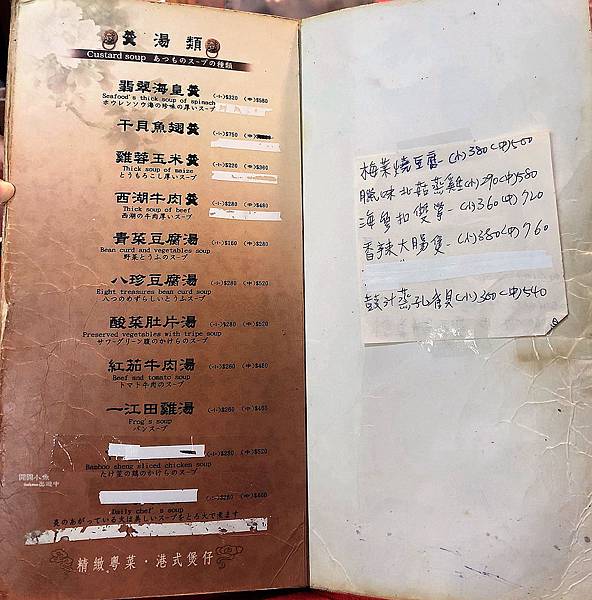 羹 湯 類
Custard soup あつものスープの種類
翡翠海皇羹 (小)$320 (中)$580
Seafood's thick soup of spinach
ホウレンソウ海の珍味の厚いスープ
干貝魚翅羹 (小)$750 (中)
雞蓉玉米羹 (小)$220 (中)$360
Thick soup of maize
とうもろこし厚いスープ
西湖牛肉羹 (小)$280 (中)$480
Thick soup of beef
西湖の牛肉厚いスープ
青菜豆腐湯 (小)$160 (中)$280
Bean curd and vegetables soup
野菜とうふのスープ
八珍豆腐湯 (小)$280 (中)$520
Eight treasures bean curd soup
八つのめずらしいとうふスープ
酸菜肚片湯 (小)$280 (中)$520
Preserved vegetables with tripe soup
サワーグリーン腹のかけらのスープ
紅茄牛肉湯 (小)$260 (中)$480
Beef and tomato soup
トマト牛肉のスープ
一江田雞湯 (小)$260 (中)$460
Frog's soup
パンスープ
(小)$280 (中)$520
Bamboo sheng sliced chicken soup
たけ茎の鶏のかけらのスープ
(小)$280 (中)$400
Daily chef's soup
炎のあがっている火は美しいスープをとろ火で煮ます
精緻粵菜・港式煲仔
梅菜燒豆腐-(小)380(中)500
臘味北菇蒸雞(小)290(中)580
海參扣雙掌-(小)360(中)720
香辣大腸煲-(小)380(中)760
豉汁蒸孔雀貝(小)360(中)540